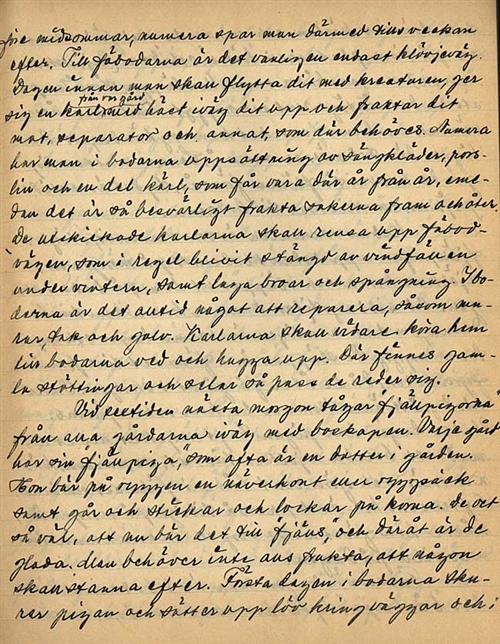 före midsommar, numera spar man därmed tills veckan
efter. Till fäbodarna är det vanligen endast klövjeväg.
Dagen innan man skall flytta dit med kreaturen, ger
sig en karl från vår gård med häst iväg dit upp och fraktar dit
mat, separator och annat, som där behöves. Numera
har man i bodarna uppsättning av sängkläder, pors-
lin och en del kärl, som får vara där år från år, eme-
dan det är så besvärligt frakta sakerna fram och åter.
De utskickade karlarna skall rensa upp fäbod-
vägen, som i regel blivit stängd av vindfällen
under vintern, samt laga broar och spångning. I bo-
derna är det alltid något att reparera, såsom mu-
rar tak och golv. Karlarna skall vidare köra hem
till bodarna ved och hugga upp. Där finnes gam-
la stöttingar och selar så pass de reder sig.
Vid sextiden nästa morgon tågar "fjällpigorna"
från alla gårdarna iväg med boskapen. Varje gård
har sin "fjällpiga", som ofta är en dotter i gården.
Hon bär på ryggen en näverkont eller ryggsäck
samt går och stickar och lockar på korna. De vet
så väl, att nu bär det till fjäll's, och däråt är de
glada. Man behöver inte alls frukta, att någon
skall stanna efter. Första dagen i bodarna sku-
rar pigan och sätter upp löv kring väggar och i